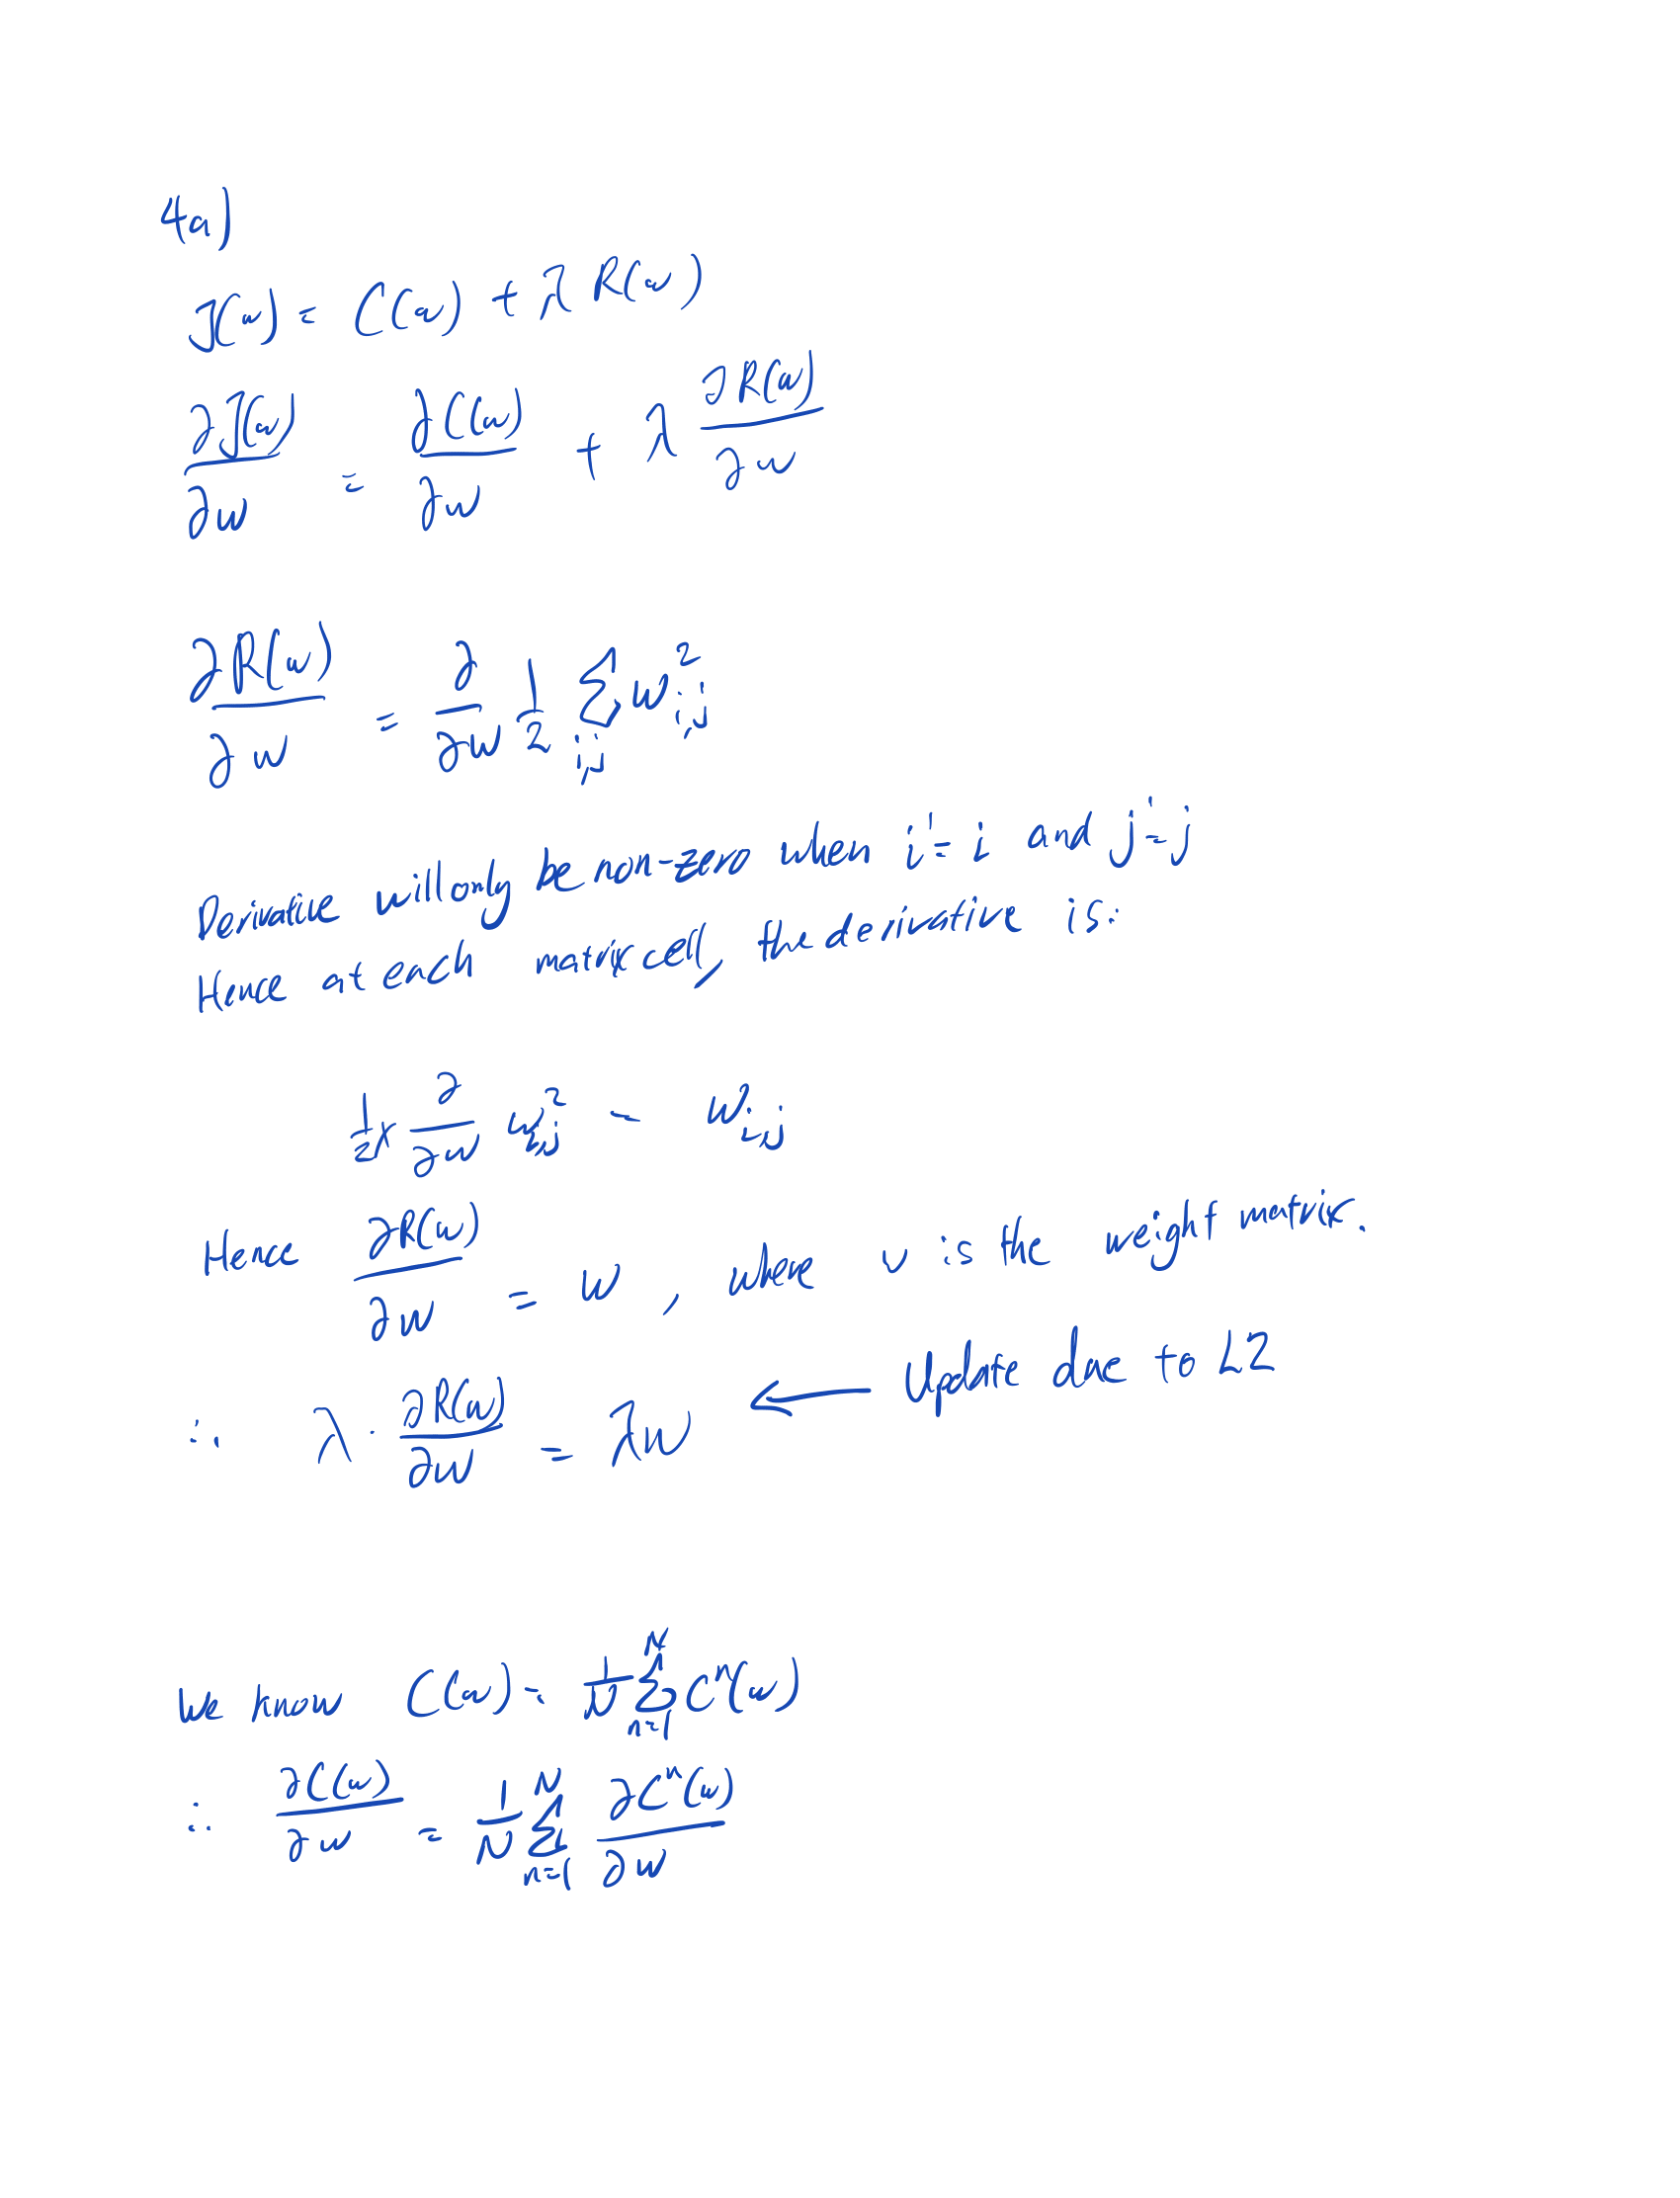 4a)
J(w) = C(w) + λ R(w)
∂J(w)/∂w = ∂C(w)/∂w + λ ∂R(w)/∂w
∂R(w)/∂w = ∂/∂w 1/2 Σ_{i,j} w_{i,j}^2
Derivative will only be non-zero when i' = i and j' = j
Hence at each matrix cell, the derivative is:
1/2 × ∂/∂w w_{i,j}^2 = w_{i,j}
Hence ∂R(w)/∂w = w , where w is the weight matrix.
∴ λ · ∂R(w)/∂w = λw ← Update due to L2
We know C(w) = 1/N Σ_{n=1}^{N} C^n(w)
∴ ∂C(w)/∂w = 1/N Σ_{n=1}^{N} ∂C^n(w)/∂w